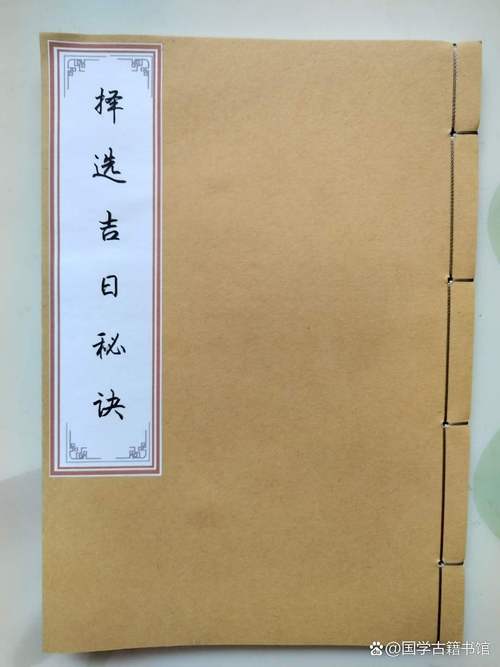 择选吉日秘诀
国学古籍书馆